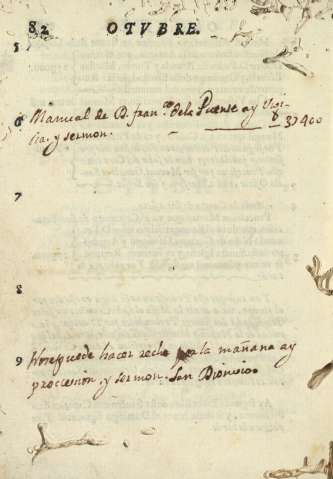 82 OTVBRE.
5
6 Manual de D. fran.co dela Puente ay Vigi-
lia, y sermon. — 37400
7
8
9 Nosepuede hacer recle por la mañana ay
proccesion, y sermon. San Dionisio